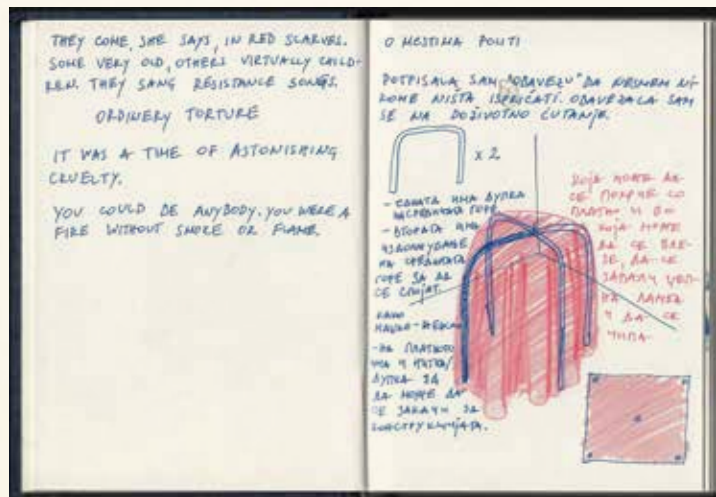 THEY COME, SHE SAYS, IN RED SCARVES.
SOME VERY OLD, OTHERS VIRTUALLY CHILD-
REN. THEY SANG RESISTANCE SONGS.
ORDINERY TORTURE
IT WAS A TIME OF ASTONISHING
CRUELTY.
YOU COULD BE ANYBODY. YOU WERE A
FIRE WITHOUT SMOKE OR FLAME.
O MESTIMA POLITI
POTPISALA SAM "OBAVEZU" DA NESMEM NI-
KOME NIŠTA ISPRIČATI. OBAVEZALA SAM
SE NA DOŽIVOTNO ĆUTANJE.
x 2
- ЕДНАТА ИМА ДУПКА
ГОРЕ
- ВТОРАТА ИМА
НА СРЕДИНАТА
ГОРЕ ЗА ДА
СЕ СПОЈАТ.
КАКО
- НА ПЛАТНОТО
ИМА
ДУПКА ЗА
ДА МОЖЕ ДА
СЕ ЗАКАЧИ ЗА
КОНСТРУКЦИЈАТА.
КОЈА МОЖЕ ДА
СЕ ПОКРИЕ СО
ПЛАТНО И ВО
КОЈА МОЖЕ
ДА СЕ ВЛЕ-
ЗЕ, ДА СЕ
ЗАПАЛИ
НА ЛАМБА
И ДА СЕ
ЧИТА